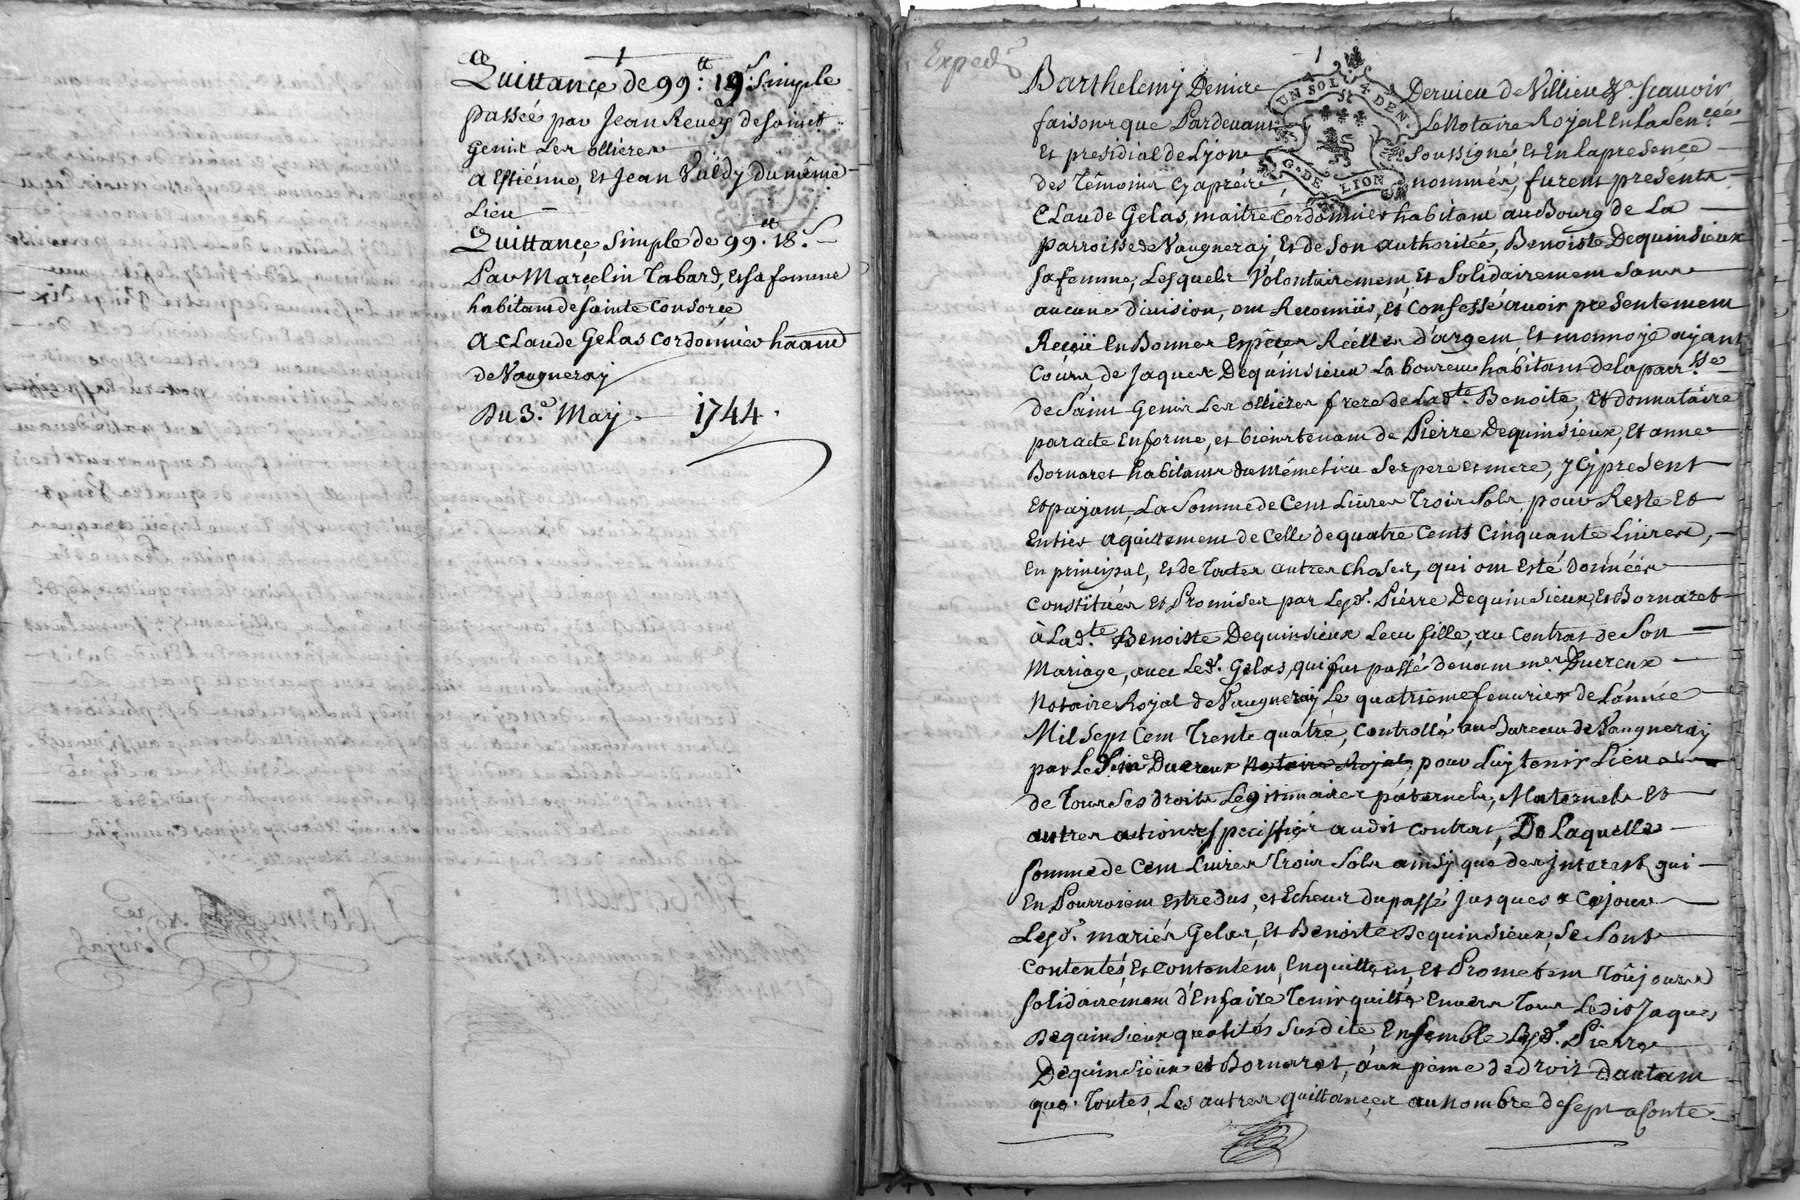 1
Quittance de 99.tt 19.s simple
passée par Jean Revey de saint
Genis Les ollieres
a Estienne, et Jean Vuldy du même
Lieu
Quittance simple de 99.tt 18.s
Par Marcelin Tabard, et sa femme
habitans de sainte Consorce
a Claude Gelas cordonnier haānt
de Vaugneray
Du 3.e May 1744.
Exped.
1
UN SOL 4 DEN.
G. DE LION
Barthelemy Denire Dervieu de Villieu &a. scavoir
faisons que Pardevant Le Notaire Royal En La Sen.ceé
Et presidial de Lyon Soussigné, et En la presence
des Témoins Cyaprés nommés, furent presents
Claude Gelas, maitre cordonnier habitant au Bourg de La
parroisse de Vaugneray, Et de Son authorité, Benoiste Dequinsieux
sa femme, Lesquels Volontairement, et Solidairement Sans
aucune division, ont Reconnüs, et Confessé avoir presentement
Reçeü En Bonnes Espèces Réelles d'argent et monnoye ayant
Cours, de Jaques Dequinsieux Laboureur habitant de la parr.sse
de Saint Genis Les ollieres frere de Lad.te Benoite, et donnataire
par acte En forme, et bienstenant de Pierre Dequinsieux, et anne
Bornaret habitants du mémelieu Ses pere et mere, ycy present
Et payant, La Somme de Cent Livres Trois Sols, pour Reste Et
Entier aquittement de Celle de quatre Cents Cinquante Livres,
En principal, et de Toutes autres choses, qui ont Esté données
Constituées et Promises par Lesd.s Pierre Dequinsieux, et Bornaret
à Lad.te Benoiste Dequinsieux Leur fille, au Contrat de Son
Mariage, avec Led.t Gelas, qui fut passé devant me Ducreux
Notaire Royal de Vaugneray Le quatrieme fevrier de L'année
Mil Sept Cent Trente quatre, Controllé au Bureau de Vaugneray
par Led. me Ducreux Notaire Royal, pour Luy tenir Lieu
de Tous Ses droits Legitimaires paternels, Maternels Et
autres actions specifiés audit Contrat, De Laquelle
somme de Cent Livres Trois Sols ainsy que des Interest qui
En Pourroient Estre dus, et Echeus du passé Jusques a Ce jour
Lesd.s mariés Gelas, et Benoite Dequinsieux, Se Sont
Contentés, et contentent, En quittent, et Promettent Toûjours
solidairement d'En faire Tenir quitte Envers Tous Ledit Jaques
Dequinsieux qualités Susdite, Ensemble Lesd.s Pierre
Dequinsieux et Bornaret, aux peine de droit Dautant
que Toutes, Les autres quittances au nombre de Sept a Conte